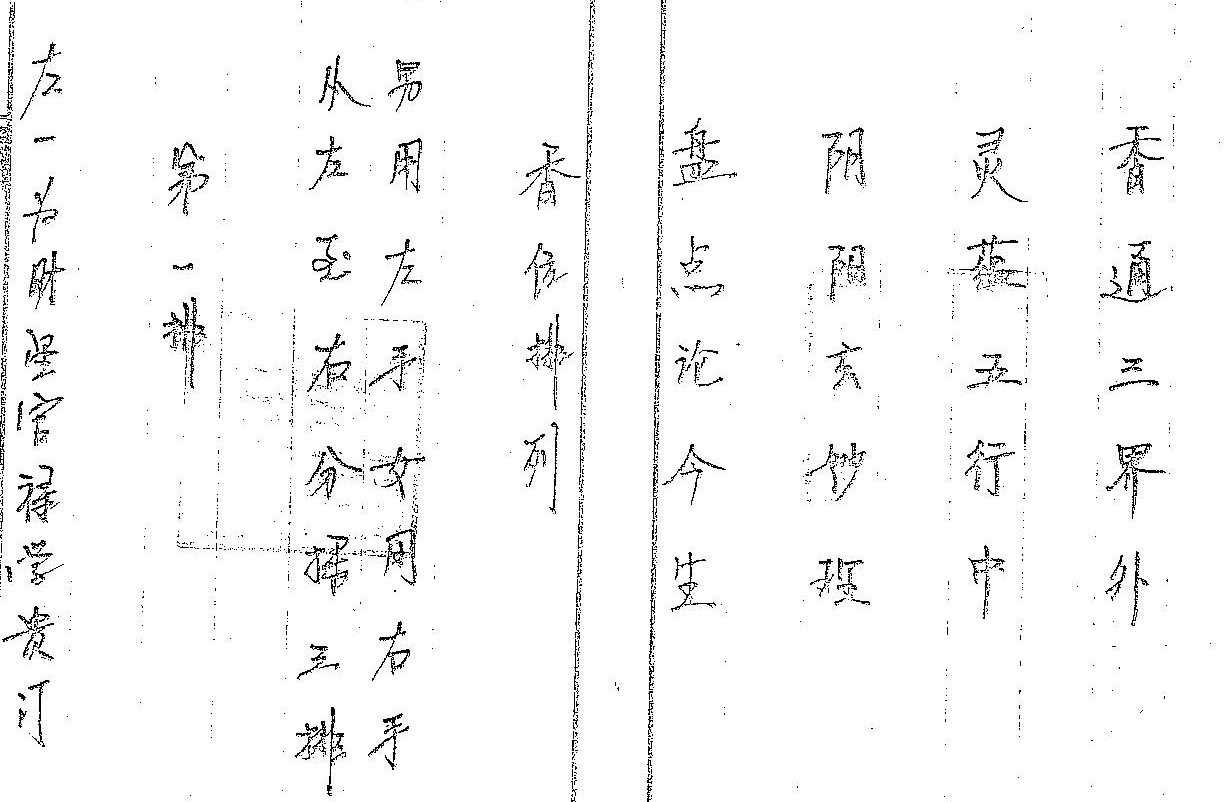 香通三界外
灵蕴五行中
阴阳玄妙理
盘点论今生
香位排列
男用左手女用右手
从左至右分排三排
第一排
左一为财星官禄学贵